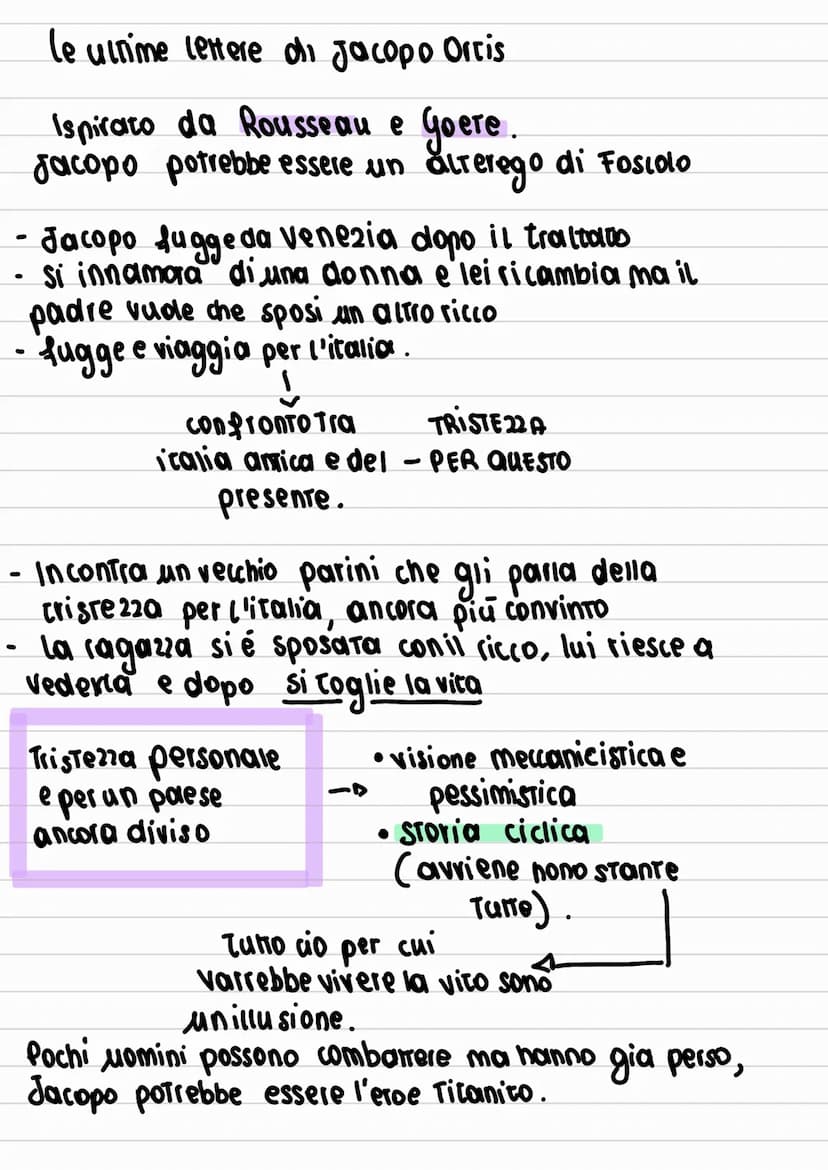 le ultime lettere di Jacopo Ortis
Ispirato da Rousseau e Goete.
Jacopo potrebbe essere un alterego di Foscolo
- Jacopo fugge da Venezia dopo il trattato
- si innamora di una donna e lei ricambia ma il
padre vuole che sposi un altro ricco
- fugge e viaggia per l'italia.
confronto tra TRISTEZZA
italia antica e del - PER QUESTO
presente.
- Incontra un vecchio parini che gli parla della
tristezza per l'italia, ancora più convinto
- La ragazza si é sposata con il ricco, lui riesce a
vederla e dopo si toglie la vita
Tristezza personale
e per un paese
ancora diviso
• visione meccanicistica e
pessimistica
• storia ciclica
(avviene nono stante
tutto).
Tutto cio per cui
varrebbe vivere la vita sono
un illusione.
Pochi uomini possono combattere ma hanno gia perso,
Jacopo potrebbe essere l'eroe Titanico.